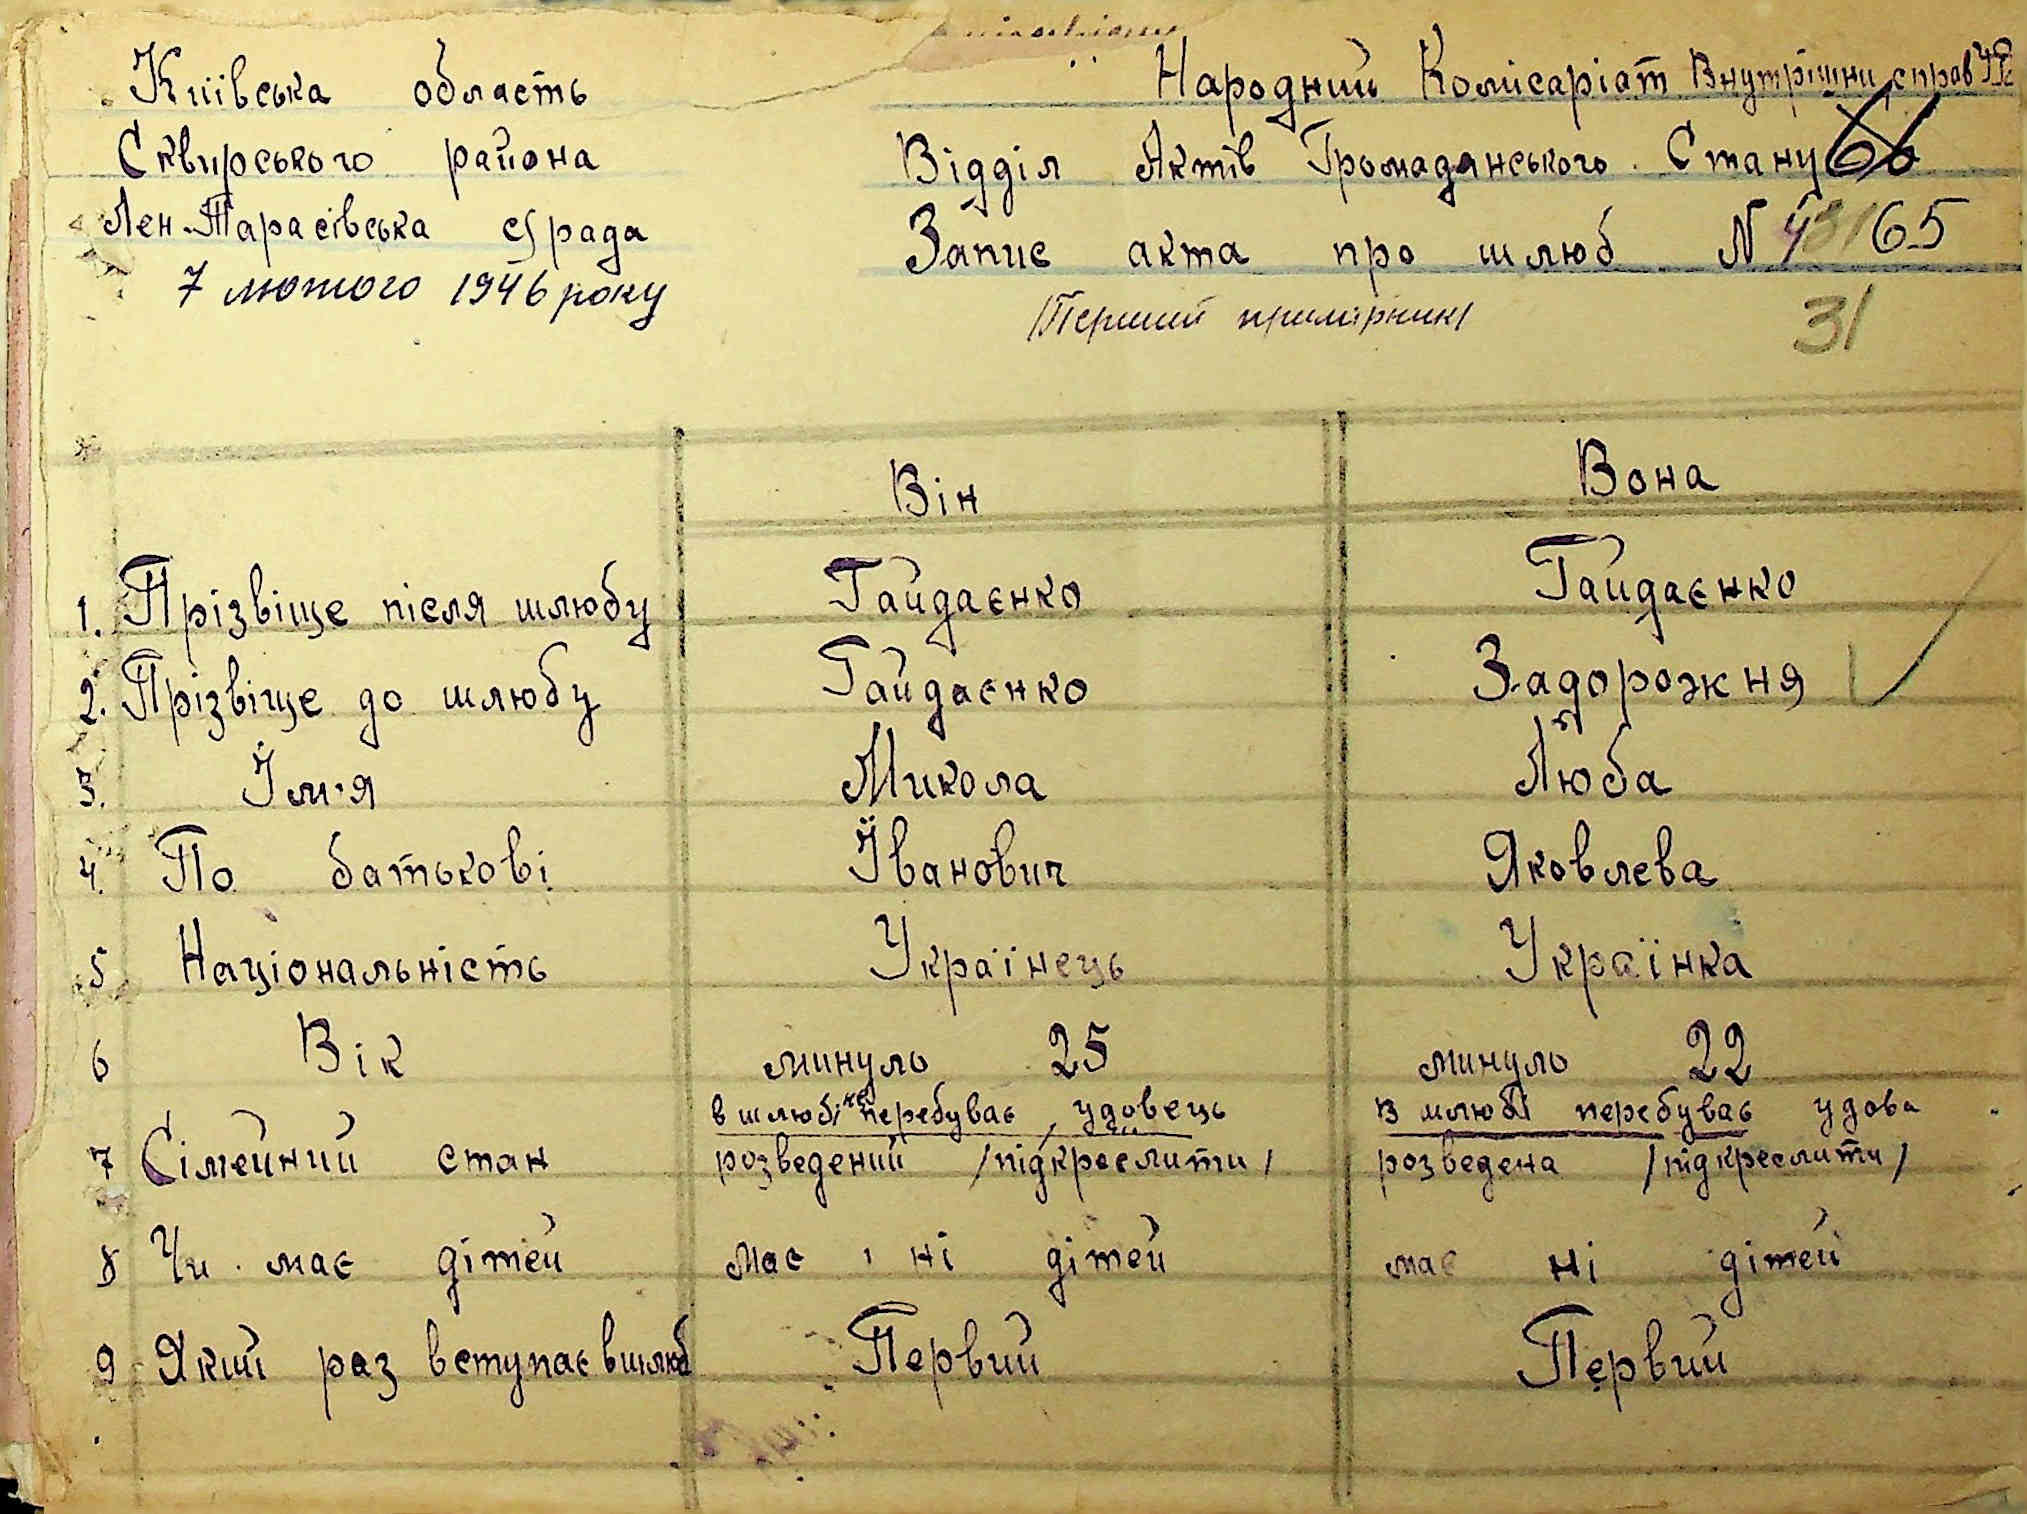 Київська область
Сквирського района
Лен-Тарасівська с/рада
7 лютого 1946 року
Народний Комісаріат Внутрішни справ
Відділ Актів Громадянського Стану
Запис акта про шлюб N 4 31 65
/Перший примірник/
31
Він Вона
1. Прізвіще після шлюбу Гайдаєнко Гайдаєнко
2. Прізвіще до шлюбу Гайдаєнко Задорожня
3. Їм'я Микола Люба
4. По батькові Їванович Яковлева
5 Національність Українець Українка
6 Вік минуло 25 минуло 22
в шлюбі не перебуває, удовець в шлюбі перебуває удова
7 Сімейний стан розведений /підкреслити/ розведена /підкреслити/
8 Чи має дітей має ні дітей має ні дітей
9 Який раз вступає в шлюб Первий Первий